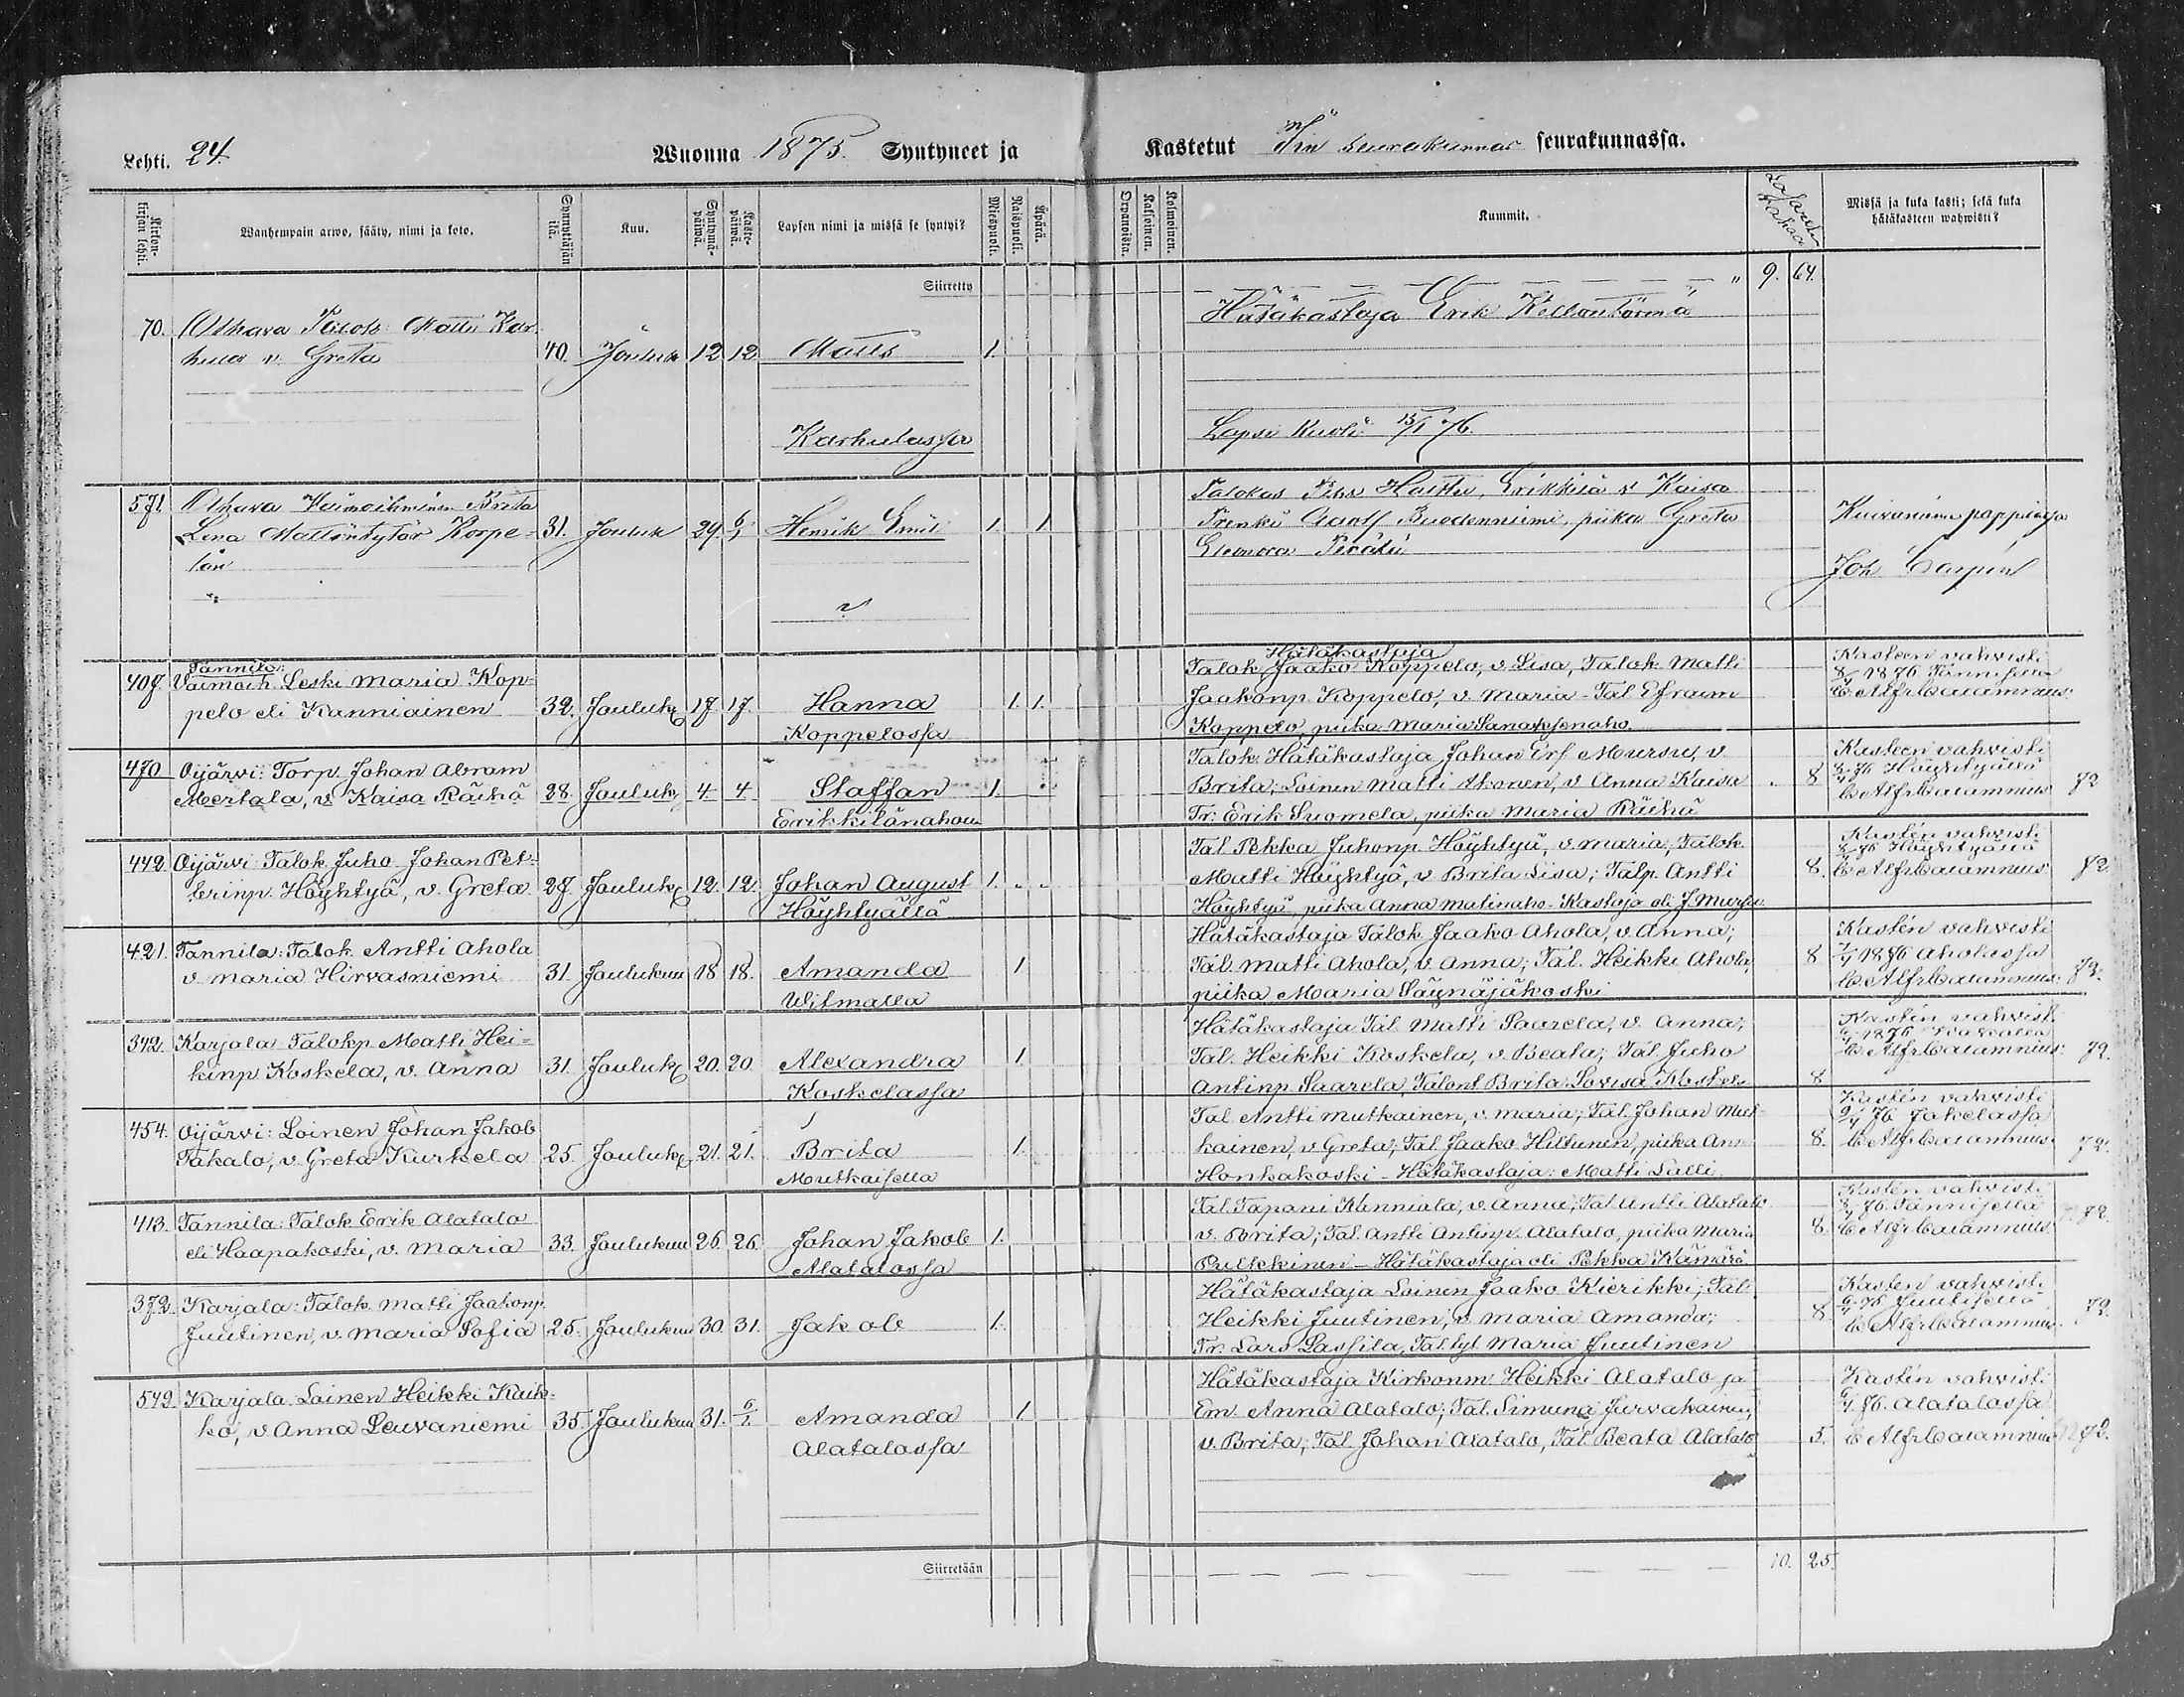 Lehti. 24.
Wuonna 1875. Syntyneet ja
Kastetut Iin seurakunnas seurakunnassa.
Kirkonkirjan lehti.
Wanhempain arwo, sääty, nimi ja koto.
Synnyttäjän ikä.
Kuu.
Syntymäpäivä.
Kastepäivä.
Lapsen nimi ja missä se syntyi?
Miespuoli.
Naispuoli.
Äpärä.
Orpanoista.
Kaksoinen.
Kolmoinen.
Kummit.
Missä ja kuka kasti; sekä kuka hätäkasteen wahwisti?
Siirretty 9. 64.
70. Olhava Matti Kar-
hula v. Greta 40. Jouluk 12 12 Matts 1.
Karhulassa
Hätäkastaja Erik Kellontörmä
Lapsi kuoli 15/1 76.
571. Olhava Vaimoihminen Brita
Lena Matintytär Korpe- 31. Jouluk 29. 6/1 Henrik Emil 1. 1
län
Talokas Halttu, Erikkilä v Kaisa
Trenki Adolf Buodenniemi, piika Greta
Eleonora Perälä
Kuivaniemi pappilassa
Joh Carpén
407. Tannila:
Vaimoih. Leski Maria Kop-
pelo eli Kanniainen 32. Jouluk 17. 17. Hanna 1. 1.
Koppelossa
Hätäkastaja
Talok. Jaako Koppelo, v. Lisa, Talok. Matti
Jaakonp. Koppelo, v. Maria - Tal Efraim
Koppelo, piika Maria Sanaksenaho.
Kasteen vahvisti
8/1 1876 Tannilla
C. Alfr Calamnius.
470 Oijärvi: Torp. Johan Abram
Mertala, v. Kaisa Räihä 28. Jouluk 4. 4 Staffan 1.
Erikkilänahon
Talok. Hätäkastaja Johan Erf Mursu, v
Brita; Loinen Matti Ikonen, v Anna Kaisa 8
Tr: Erik Suomela, piika Maria Räihä
Kasteen vahvisti
8/1 76 Höyhtyällä
C Alfr Calamnius 72
442 Oijärvi: Talok. Juho Johan Pet-
terinp. Höyhtyä, v. Greta 27. Jouluk 12. 12. Johan August 1.
Höyhtyällä
Tal Pekka Juhonp. Höyhtyä, v. Maria; Talok
Matti Höyhtyä, v Brita Lisa; Talp. Antti 8.
Höyhtyä, piika Anna Matinaho - Kastaja oli J. Mursu
Kastén vahvisti
8/1 76 Höyhtyällä
C Alfr Calamnius 72.
421. Tannila: Talok. Antti Ahola
v. Maria Hirvasniemi 31. Joulukuu 18 18. Amanda 1.
Wilmalla
Hätäkastaja Talok Jaako Ahola, v. Anna;
Tal. Matti Ahola, v. Anna; Tal. Heikki Ahola, 8
piika Maria Säynäjäkoski
Kastén vahvisti
7/1 1876 Aholassa
C. Alfr Calamnius. 72.
342. Karjala: Talokp Matti Hei-
kinp. Koskela, v. Anna 31. Jouluk 20. 20. Alexandra 1.
Koskelassa
Hätäkastaja Tal. Matti Saarela, v. Anna;
Tal. Heikki Koskela, v. Beata; Tal. Juho
Antinp. Saarela, Talont. Brita Lovisa Koskel 8
Kastén vahvisti
C Alfr Calamnius. 72.
454. Oijärvi: Loinen Johan Jakob
Takalo, v. Greta Kurkela 25. Jouluk 21. 21. Brita 1.
Mutkaisella
Tal. Antti Mutkainen, v. Maria; Tal. Johan Mut-
kainen, v Greta; Tal. Jaako Hiltunen, piika Ann 8.
Honkakoski - Hätäkastaja: Matti Salli
Kastén vahvisti
9/1 76 Jokelassa
C Alfr Calamnius. 72.
413. Tannila: Talok. Erik Alatalo
eli Haapakoski, v. Maria 33. Joulukuu 26. 26. Johan Jakob 1.
Alatalossa
Tal. Tapani Kanniala, v. Anna; Tal Antti Alatalo
v. Brita; Tal. Antti Antinp. Alatalo, piika Maria 8.
Pulkkinen - Hätäkastaja oli Pekka Kämärä
Kastén vahvisti
8/1 76. Tannilla
C Alfr Calamnius 72.
372. Karjala: Talok. Matti Jaakonp.
Juutinen, v. Maria Sofia 25. Joulukuu 30. 31. Jakob 1.
Hätäkastaja Loinen Jaako Kierikki; Tal.
Heikki Juutinen, v Maria Amanda; 8
Tr. Lars Lassila, Tal. tyt. Maria Juutinen
Kastén vahvisti
6/1 76 Juutisella
C Alfr Calamnius. 72.
549. Karjala: Loinen Heikki Kaik-
ko, v Anna Leuvaniemi 35. Joulukuu 31. 6/1. Amanda 1.
Alatalossa
Hätäkastaja Kirkonm. Heikki Alatalo ja
Em. Anna Alatalo; Tal. Simuna Jurvakainen,
v. Brita; Tal. Johan Alatalo, Tal. Beata Alatalo 5.
Kastén vahvisti
6/1 76. Alatalossa
C Alfr Calamnius 72.
Siirretään 10. 25.